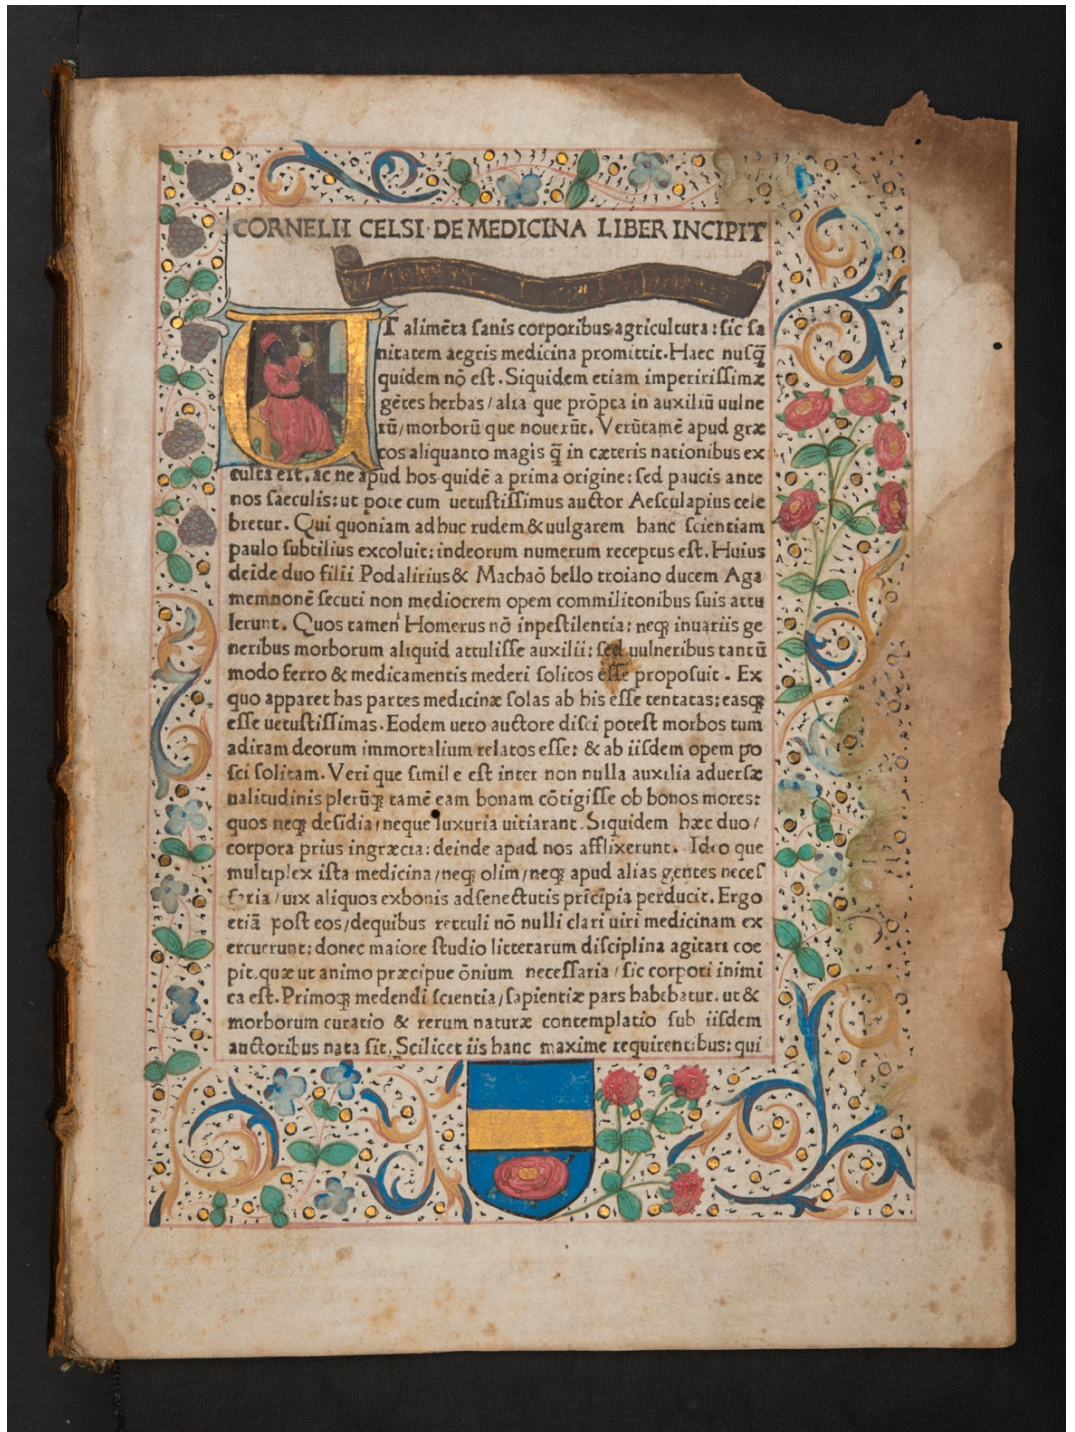 CORNELII CELSI·DE MEDICINA LIBER INCIPIT
UT alimẽta sanis corporibus agricultura: sic sa
nitatem aegris medicina promittit. Haec nusq̃
quidem nõ est. Siquidem etiam imperitissimæ
gẽtes herbas/alia que prõpta in auxiliũ uulne
rũ/morborũ que nouerũt. Verũtamẽ apud græ
cos aliquanto magis q̃ in cæteris nationibus ex
culta est. ac ne apud hos quidẽ a prima origine: sed paucis ante
nos saeculis: ut pote cum uetustissimus auctor Aesculapius cele
bretur. Qui quoniam adhuc rudem & uulgarem hanc scientiam
paulo subtilius excoluit: indeorum numerum receptus est. Huius
deĩde duo filii Podalirius & Machaõ bello troiano ducem Aga
memnonẽ secuti non mediocrem opem commilitonibus suis attu
lerunt. Quos tamen Homerus nõ inpestilentia: neqꝫ inuariis ge
neribus morborum aliquid attulisse auxilii: sed uulneribus tantũ
modo ferro & medicamentis mederi solitos esse proposuit. Ex
quo apparet has partes medicinæ solas ab his esse tentatas: easqꝫ
esse uetustissimas. Eodem uero auctore disci potest morbos tum
adiram deorum immortalium relatos esse: & ab iisdem opem po
sci solitam. Veri que simile est inter non nulla auxilia aduersæ
ualitudinis plerũqꝫ tamẽ eam bonam cõtigisse ob bonos mores:
quos neqꝫ desidia/neque luxuria uitiarant. Siquidem hæc duo/
corpora prius ingræcia: deinde apud nos afflixerunt. Ideo que
multiplex ista medicina/neqꝫ olim/neqꝫ apud alias gentes necess
saria/uix aliquos exbonis adsenectutis prĩcipia perducit. Ergo
etiã post eos/dequibus rettuli nõ nulli clari uiri medicinam ex
ercuerunt: donec maiore studio litterarum disciplina agitari coe
pit. quæ ut animo præcipue õnium necessaria/sic corpori inimi
ca est. Primoqꝫ medendi scientia/sapientiæ pars habebatur. ut &
morborum curatio & rerum naturæ contemplatio sub iisdem
auctoribus nata sit. Scilicet iis hanc maxime requirentibus: qui